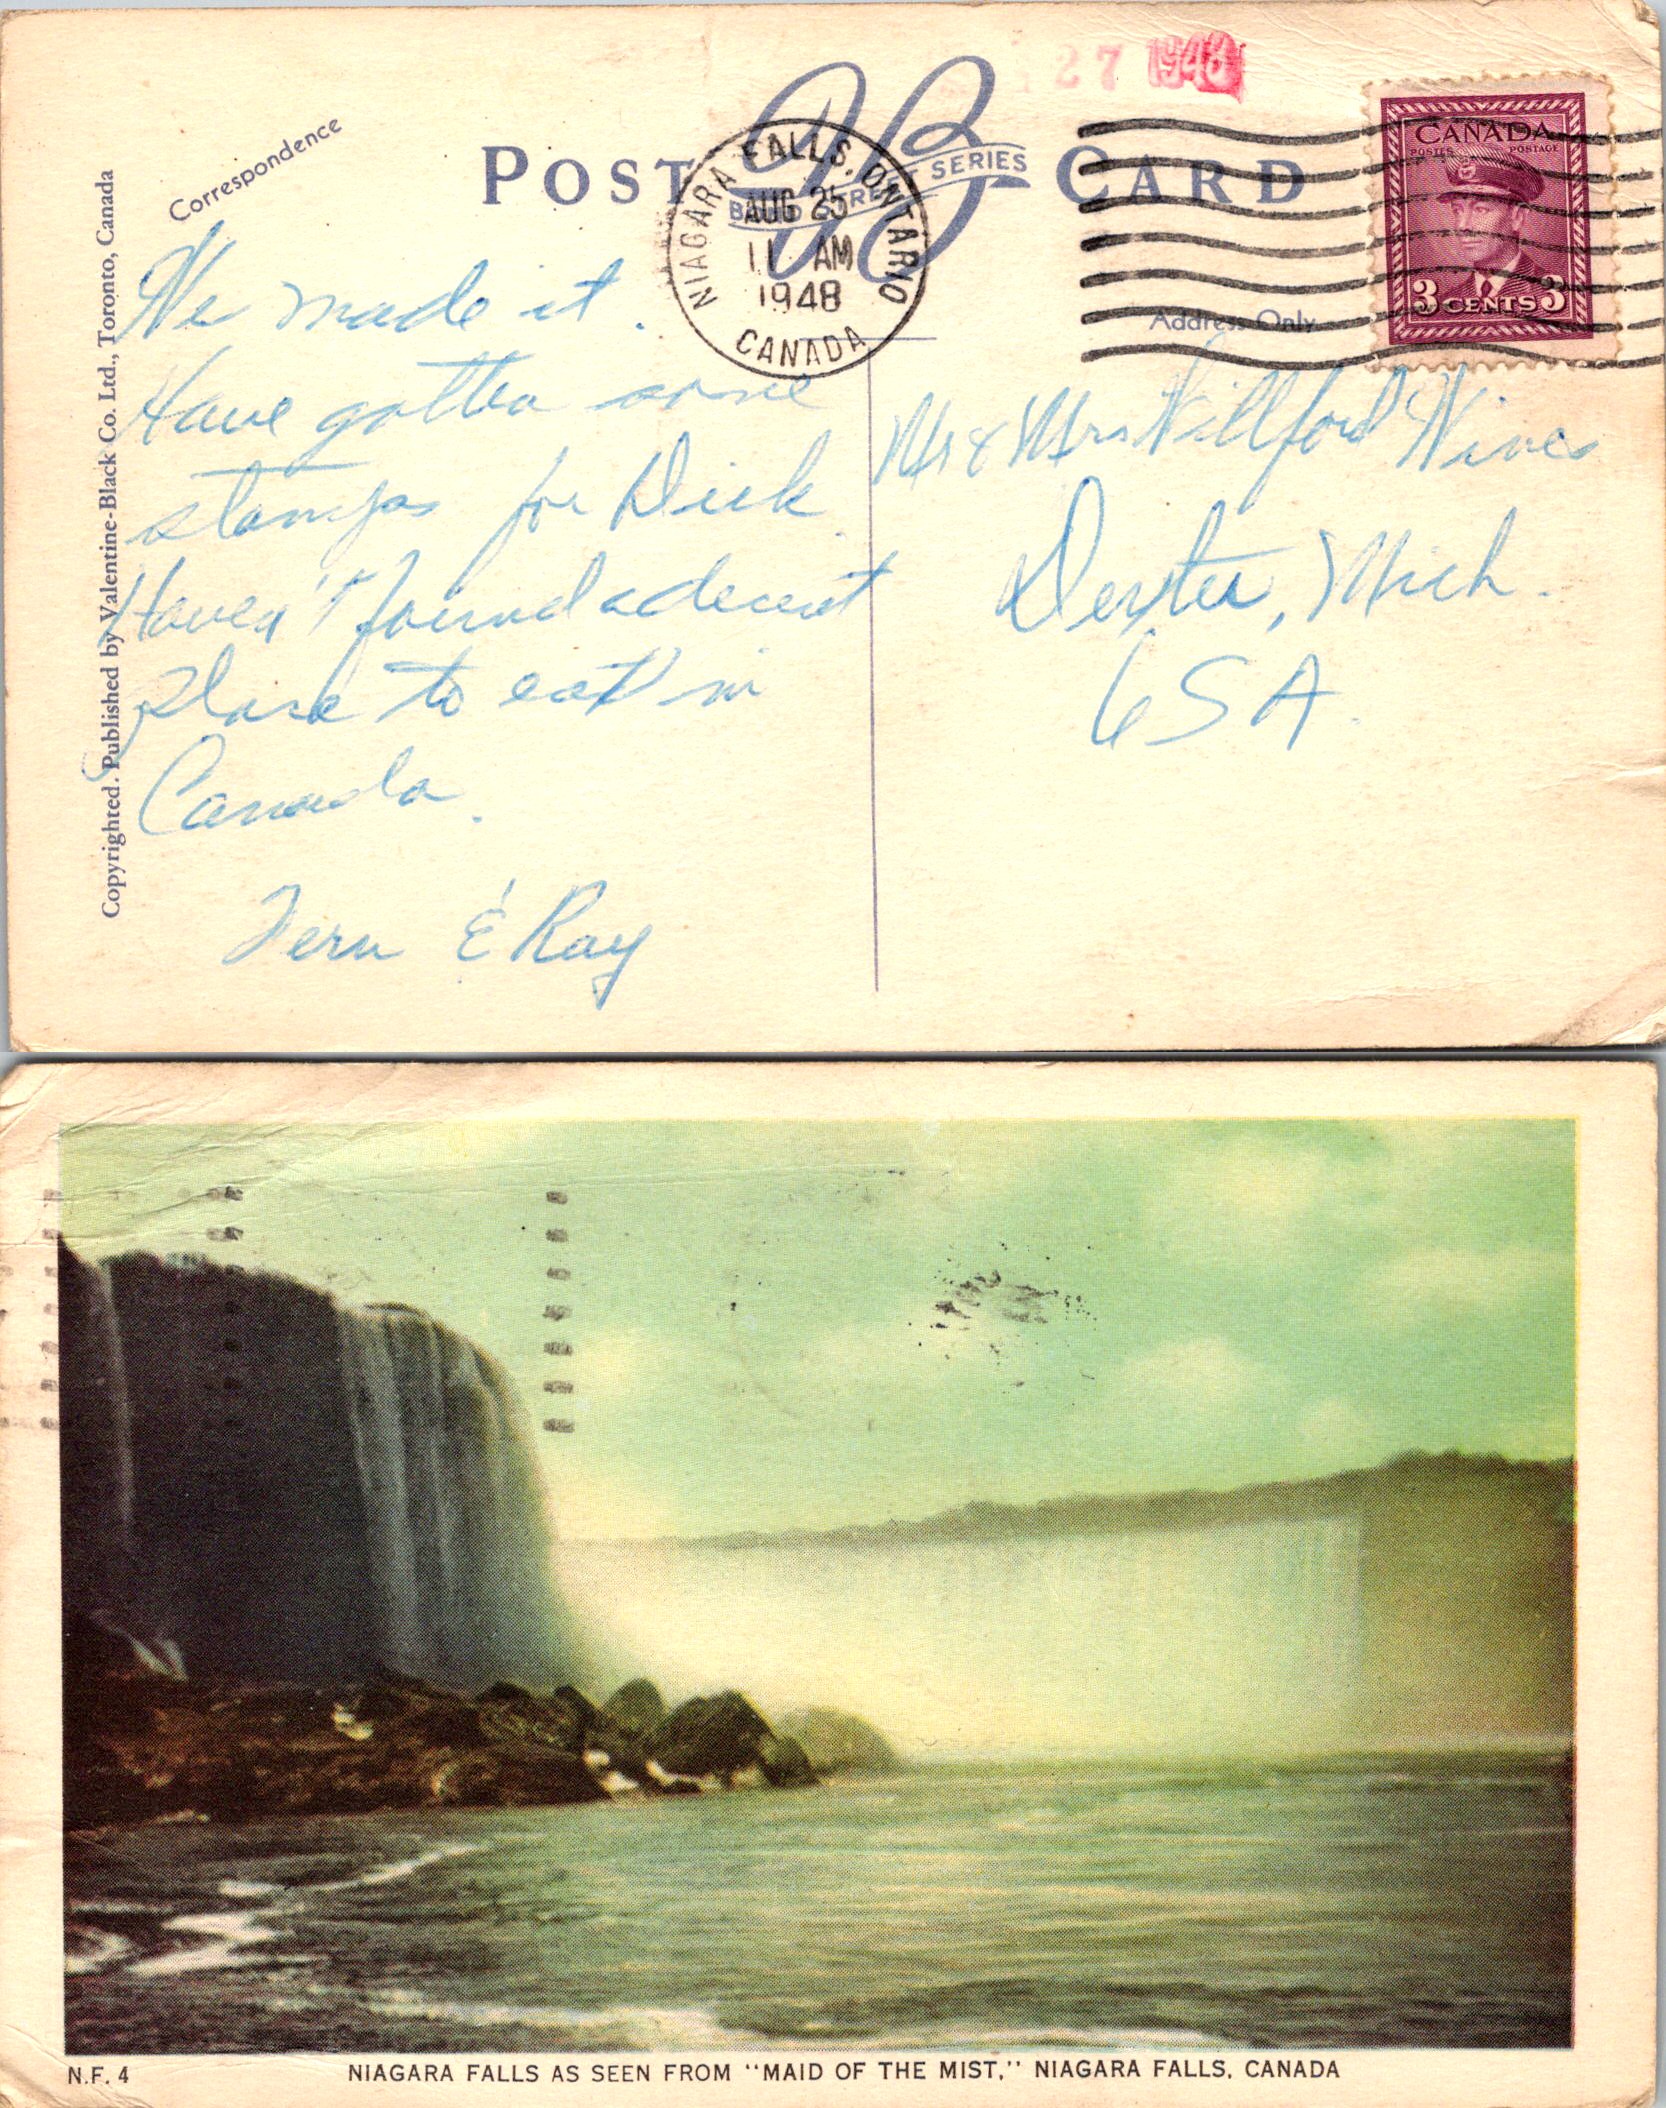 27 1948
Correspondence
POST CARD
BOND STREET SERIES
NIAGARA FALLS, ONTARIO
AUG 25
11 AM
1948
CANADA
CANADA
POSTES POSTAGE
3 CENTS 3
Address Only
Copyrighted. Published by Valentine-Black Co. Ltd., Toronto, Canada
We made it.
Have gotten some
stamps for Dick.
Haven't found a decent
place to eat in
Canada.
Fern & Ray
Mr & Mrs Willford Wines
Dexter, Mich.
USA.
N.F. 4
NIAGARA FALLS AS SEEN FROM "MAID OF THE MIST," NIAGARA FALLS, CANADA